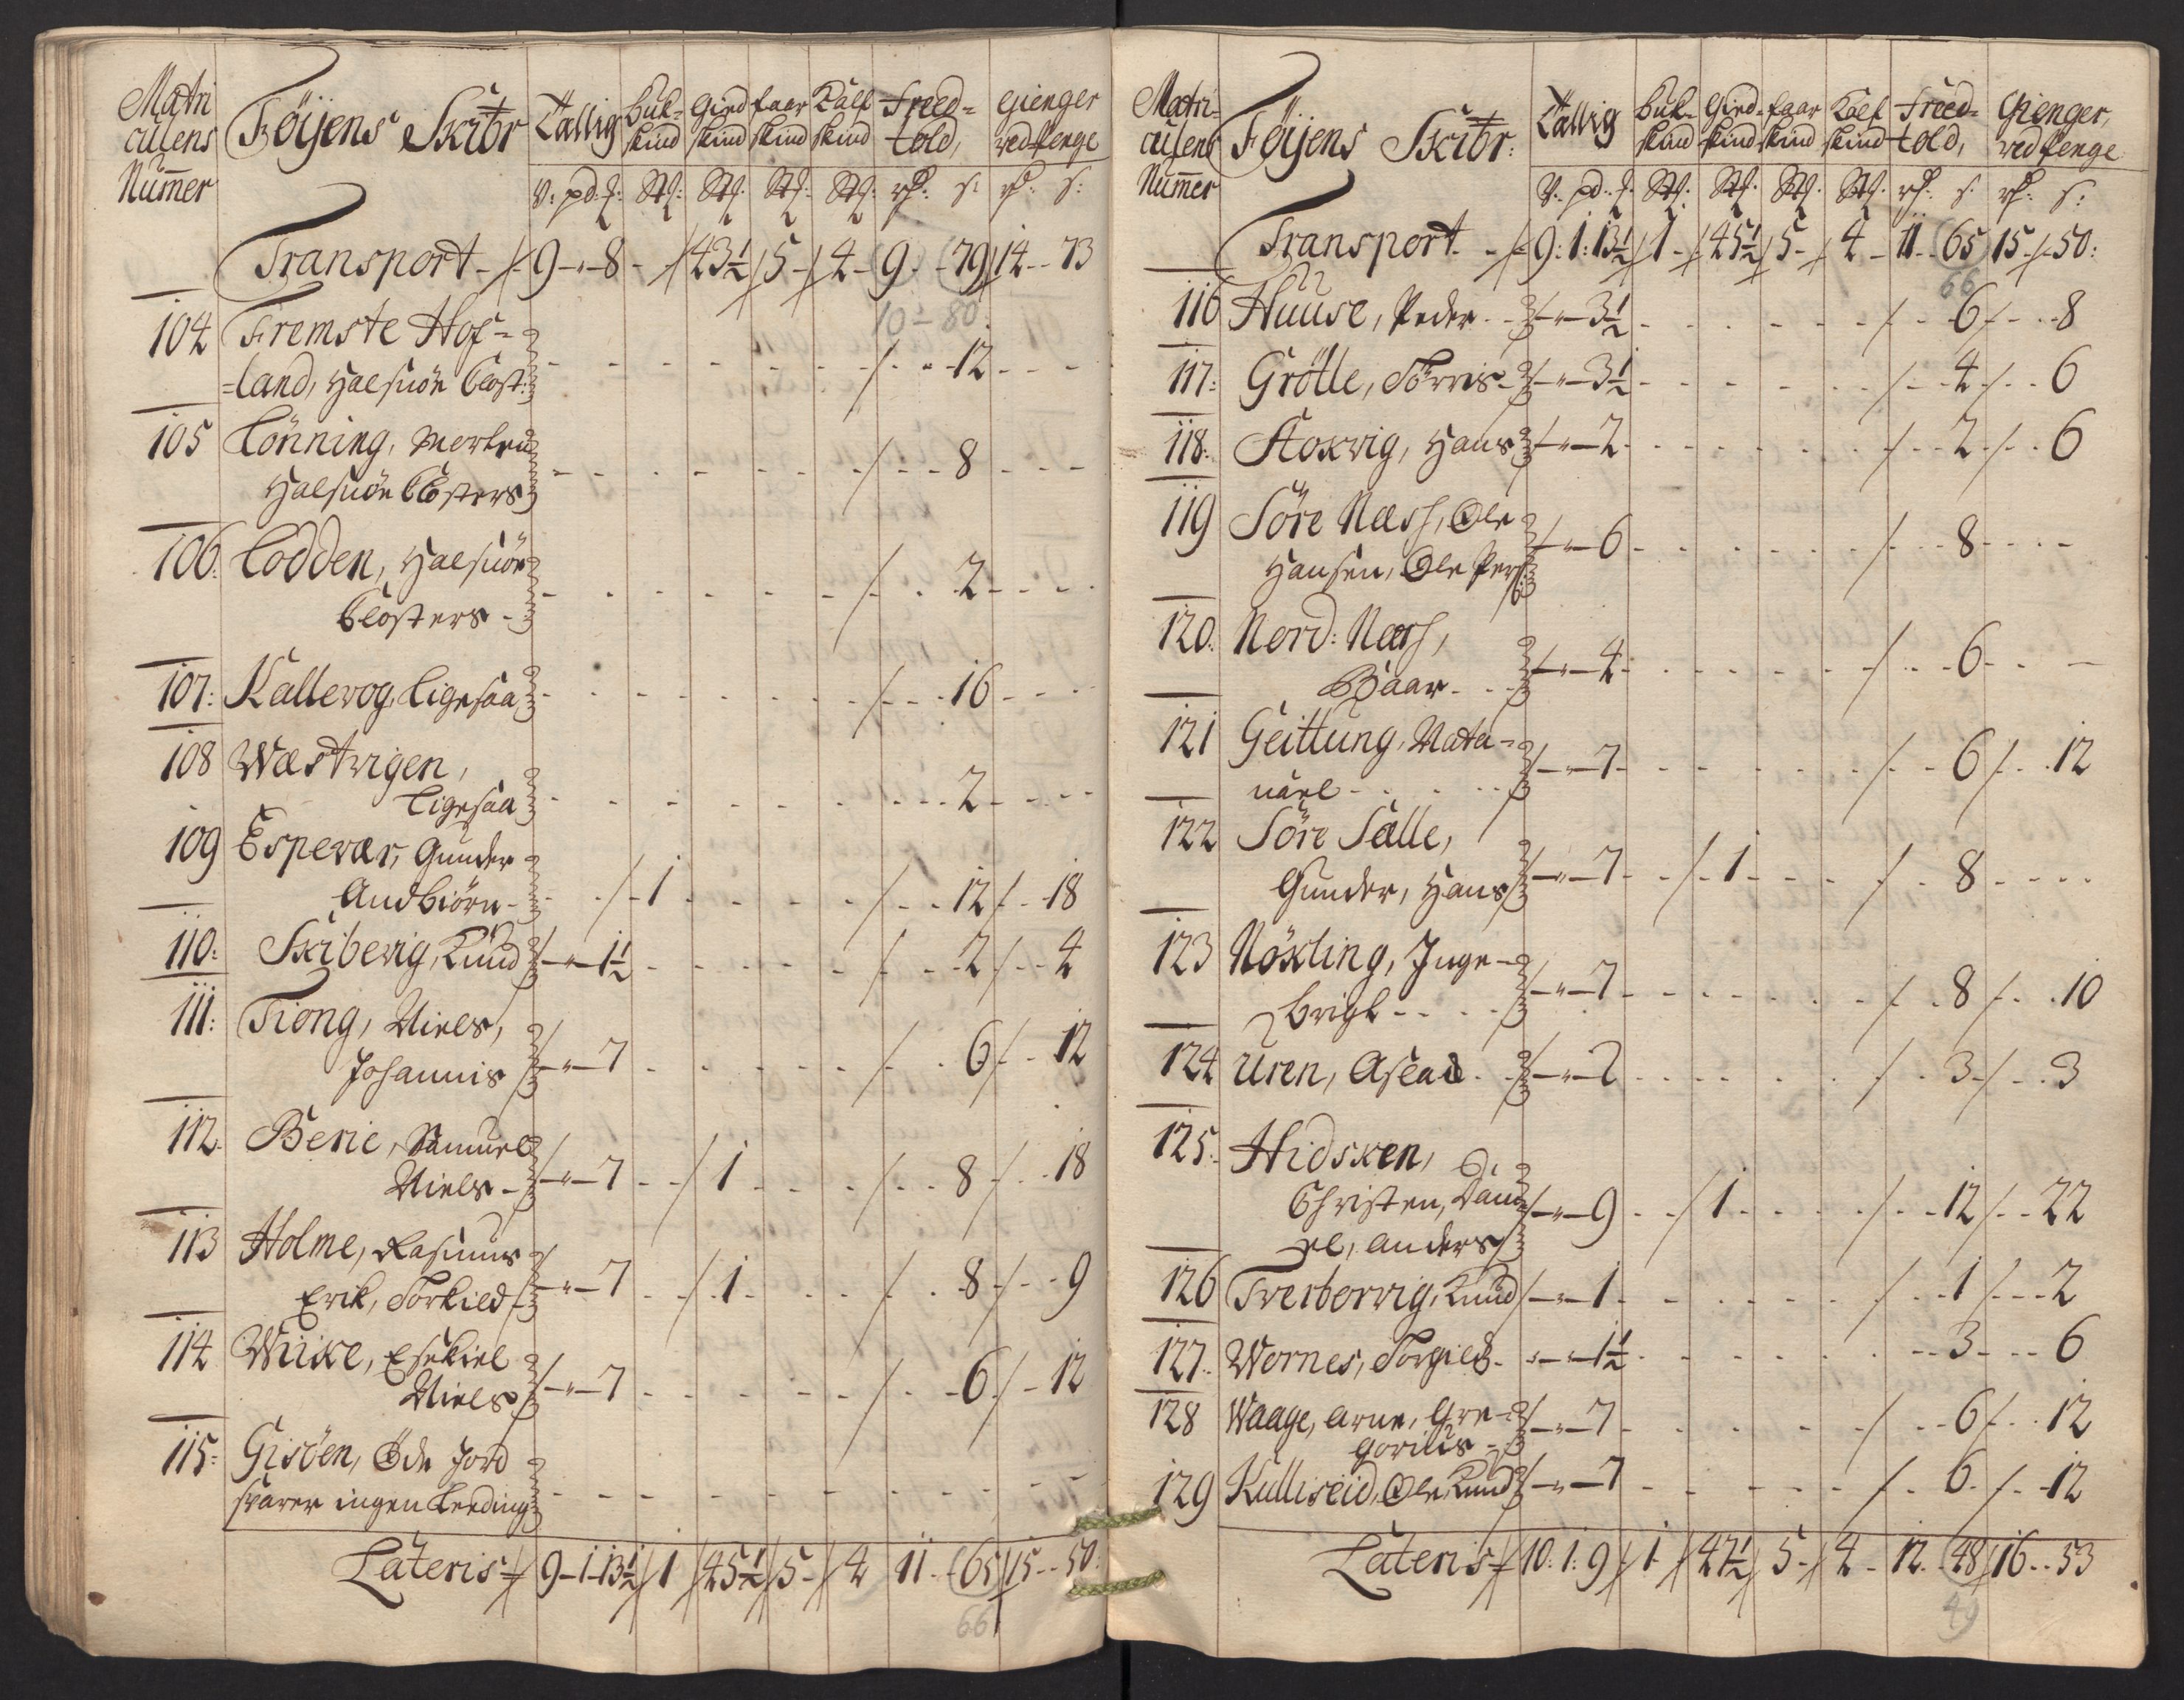 Matri
culens
Num̅er
Föijens Skibr
Tallig
Buk-
skind
Gied
skind
faar
skind
Kalf
skind
Freed-
told,
Gienger
ved penge
V. pd. ſ: Stſ: Stſ: Stſ. Stſ: rſ: s: rſ: s:
Transport 9 - 8 - 43½ 5 - 4 - 9 - 79 14 - 73
10 - 80
104 Fremste Hof-
land, Halsnöe Clost: 12
105 Lönning, Morten
Halsnöe Closters 8
106: Lodden, Halsnöe
Closters 2
107: Kallevog, ligesaa 16
108 Wæstvigen,
ligesaa 2
109 Espevær, Gunder
Andbiörn 1 12 18
110: Skibevig, Knud 1½ 2 4
111: Tiong, Niels,
Johannis 7 6 12
112. Berie, Samuel
Niels 7 1 8 18
113 Holme, Rasmus
Erik, Torkild 7 1 8 9
114 Wiike, Esekiel
Niels 7 6 12
115: Gisöen, Öde Jord
svarer ingen Leeding
Lateris 9 - 1 - 13½ 1 45½ 5 - 4 11 - 65 15 - 50:
66
Matri-
culens
Num̅er
Föijens Skibr:
Tallig
Buk-
skind
Gied-
skind
faar
skind
Kalf
skind
Freed-
told,
Gienger,
ved penge
V. pd. ſ. Stſ. Stſ. Stſ. Stſ. rſ. s. rſ: s:
Transport 9: 1: 13½ 1 - 45½ 5 - 4 - 11 - 65 15 - 50:
66
116 Huuse, Peder 3½ 6 8
117: Grölle, Törris 3½ 4 6
118: Stokvig, Hans 2 2 6
119 Söre Næss, Ole
Hansen, Ole Pers: 6 8
120. Nord: Næss,
Baar 4 6
121 Geittung, Nata-
nael 7 6 12
122 Söre Sælle,
Gunder, Hans 7 1 8
123 Nökling, Inge-
brigt 7 8 10
124 Uren, Aslad 2 3 3
125: Hidsken,
Christen, Dani
el, Anders 9 1 12 22
126 Tverborvig, Knud 1 1 2
127. Wornes, Torgield 1½ 3 6
128 Waage, Arne, Gre-
gorius 7 6 12
129 Kulliseid, Ole, Knud 7 6 12
Lateris 10: 1: 9 1 - 47½ 5 - 4 - 12 - 48 16 - 53
49